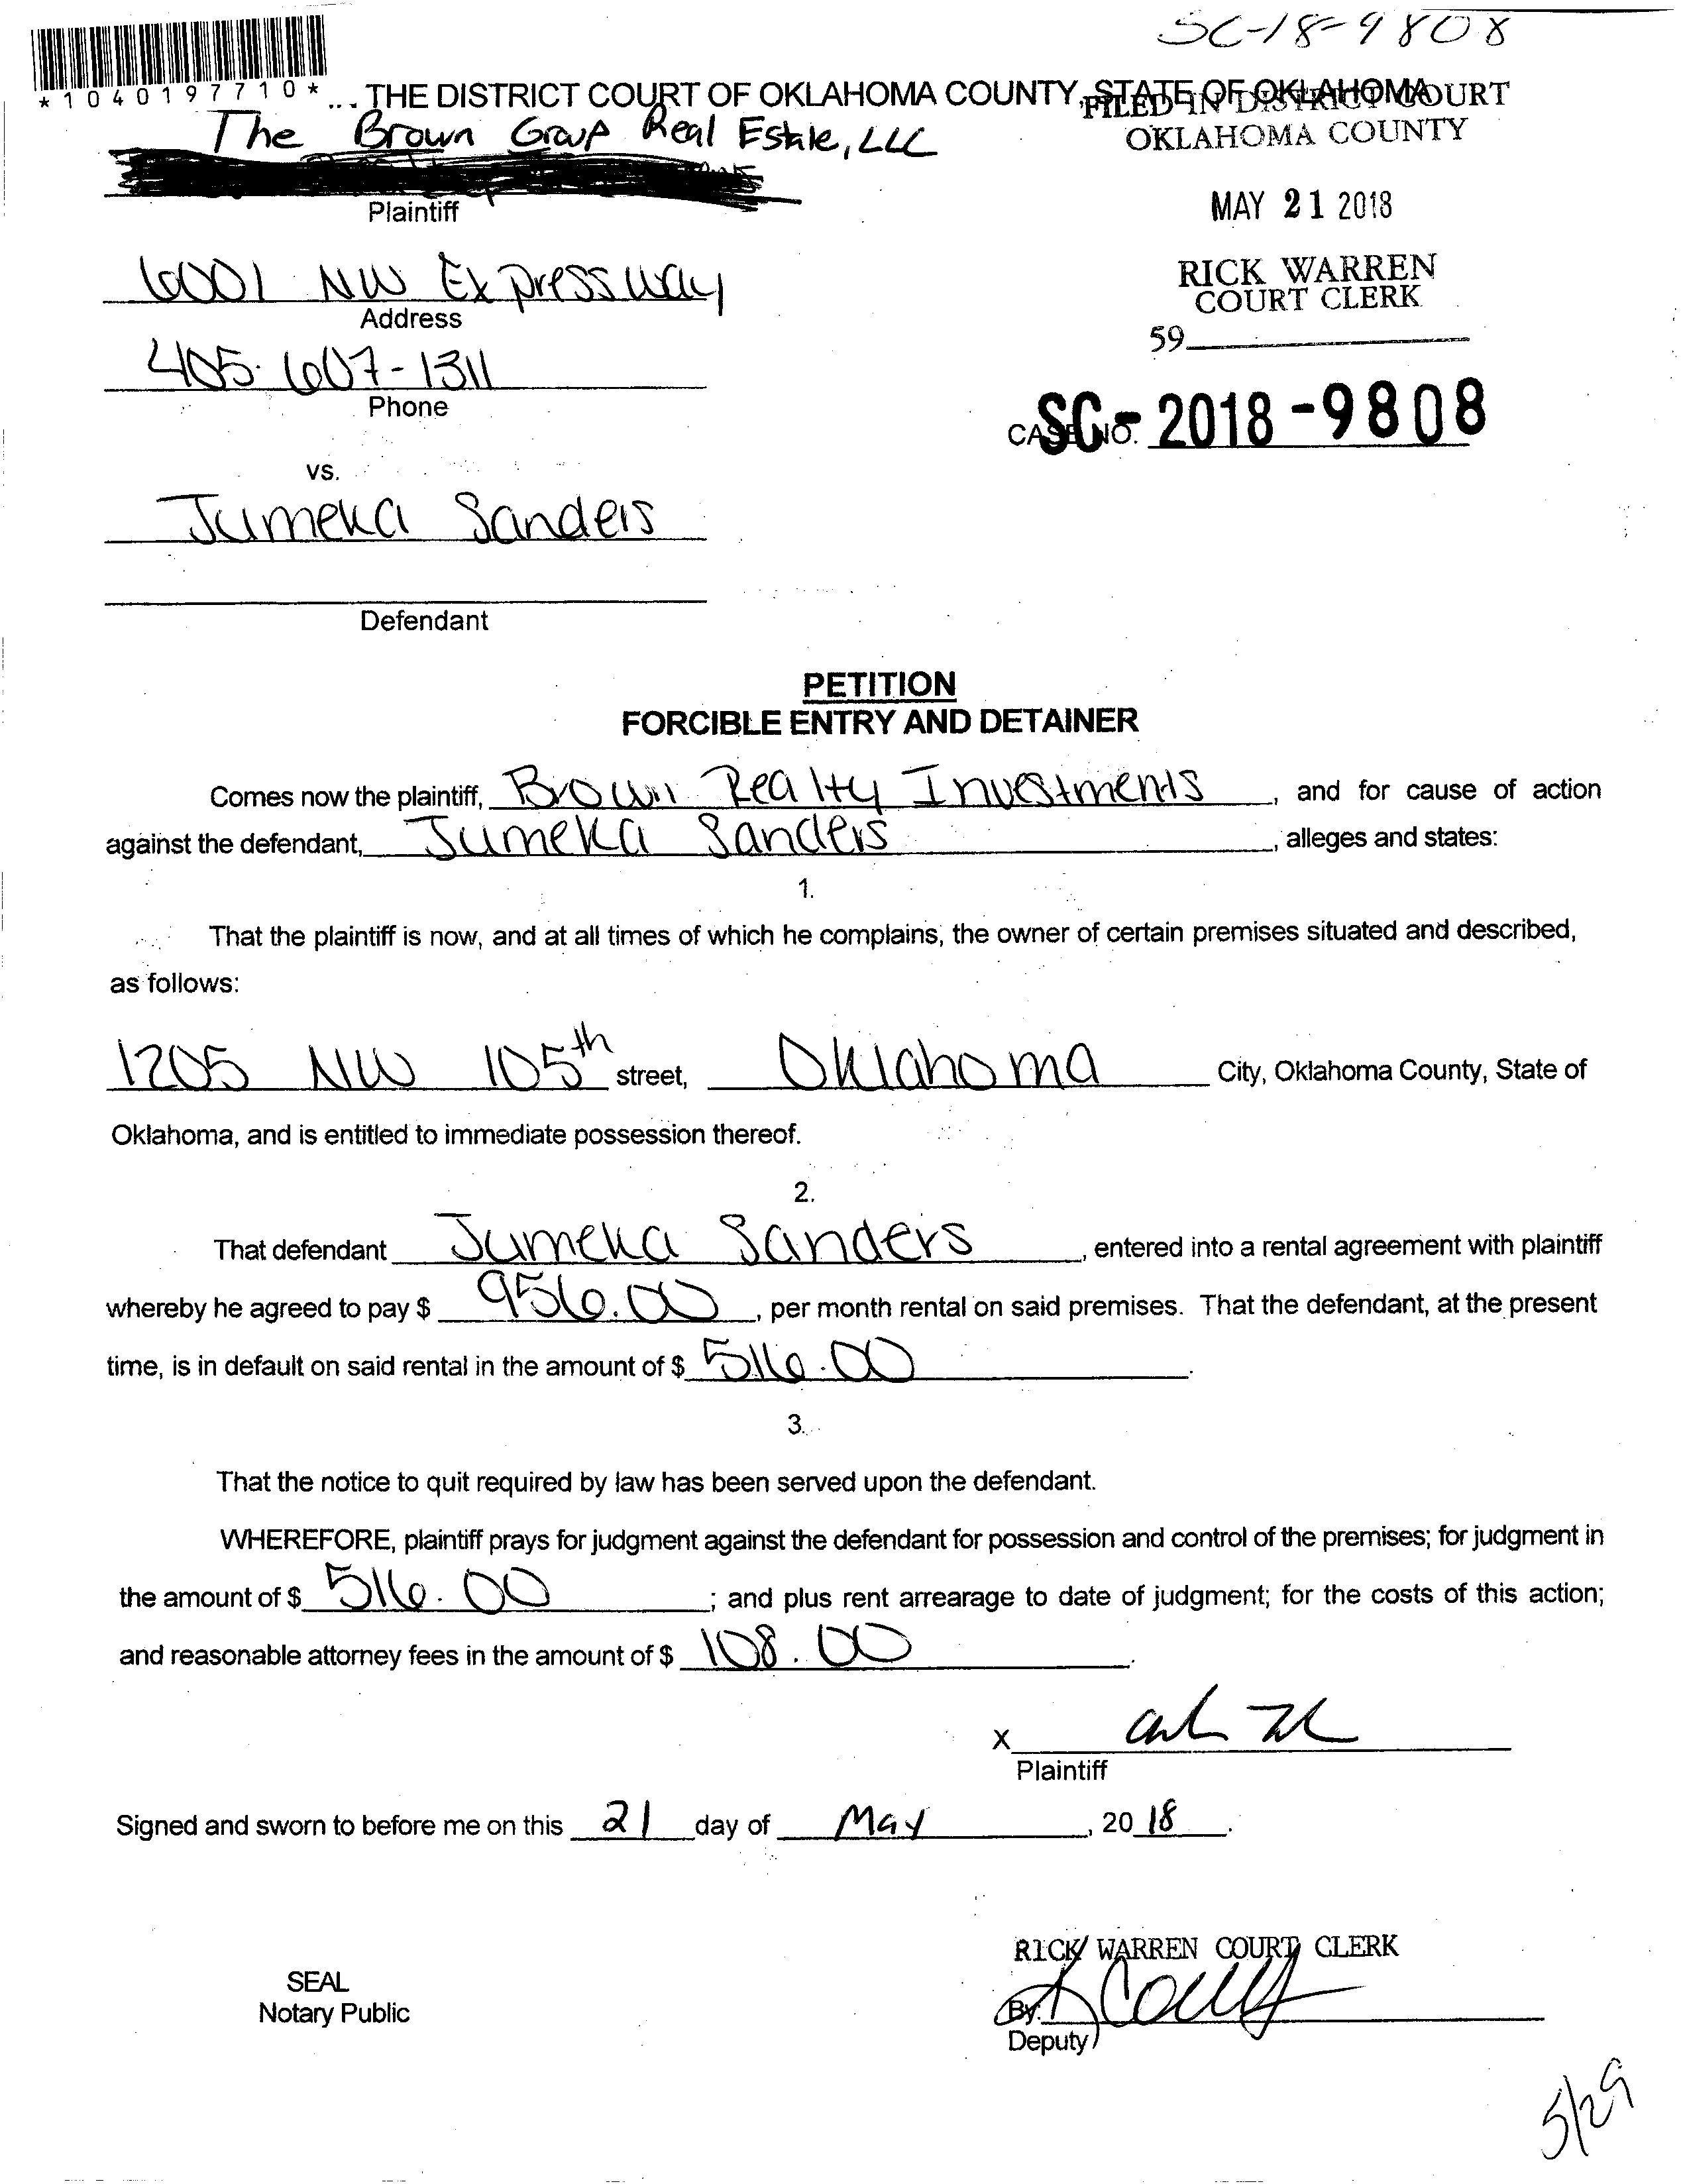 SC-18-9808
*1040197710*
... THE DISTRICT COURT OF OKLAHOMA COUNTY, STATE OF OKLAHOMA
FILED IN DISTRICT COURT
OKLAHOMA COUNTY
The Brown Group Real Estate, LLC
Plaintiff
MAY 21 2018
6001 NW Expressway
Address
RICK WARREN
COURT CLERK
59
405-607-1311
Phone
CASE NO. SC-2018-9808
vs.
Jumeka Sanders
Defendant
PETITION
FORCIBLE ENTRY AND DETAINER
Comes now the plaintiff, Brown Realty Investments, and for cause of action
against the defendant, Jumeka Sanders, alleges and states:
1.
That the plaintiff is now, and at all times of which he complains, the owner of certain premises situated and described,
as follows:
1205 NW 105th street, Oklahoma City, Oklahoma County, State of
Oklahoma, and is entitled to immediate possession thereof.
2.
That defendant Jumeka Sanders, entered into a rental agreement with plaintiff
whereby he agreed to pay $ 956.00, per month rental on said premises. That the defendant, at the present
time, is in default on said rental in the amount of $ 516.00.
3.
That the notice to quit required by law has been served upon the defendant.
WHEREFORE, plaintiff prays for judgment against the defendant for possession and control of the premises; for judgment in
the amount of $ 516.00; and plus rent arrearage to date of judgment; for the costs of this action;
and reasonable attorney fees in the amount of $ 108.00.
X
Plaintiff
Signed and sworn to before me on this 21 day of May, 2018.
RICK WARREN COURT CLERK
SEAL
Notary Public
By:
Deputy
5/29